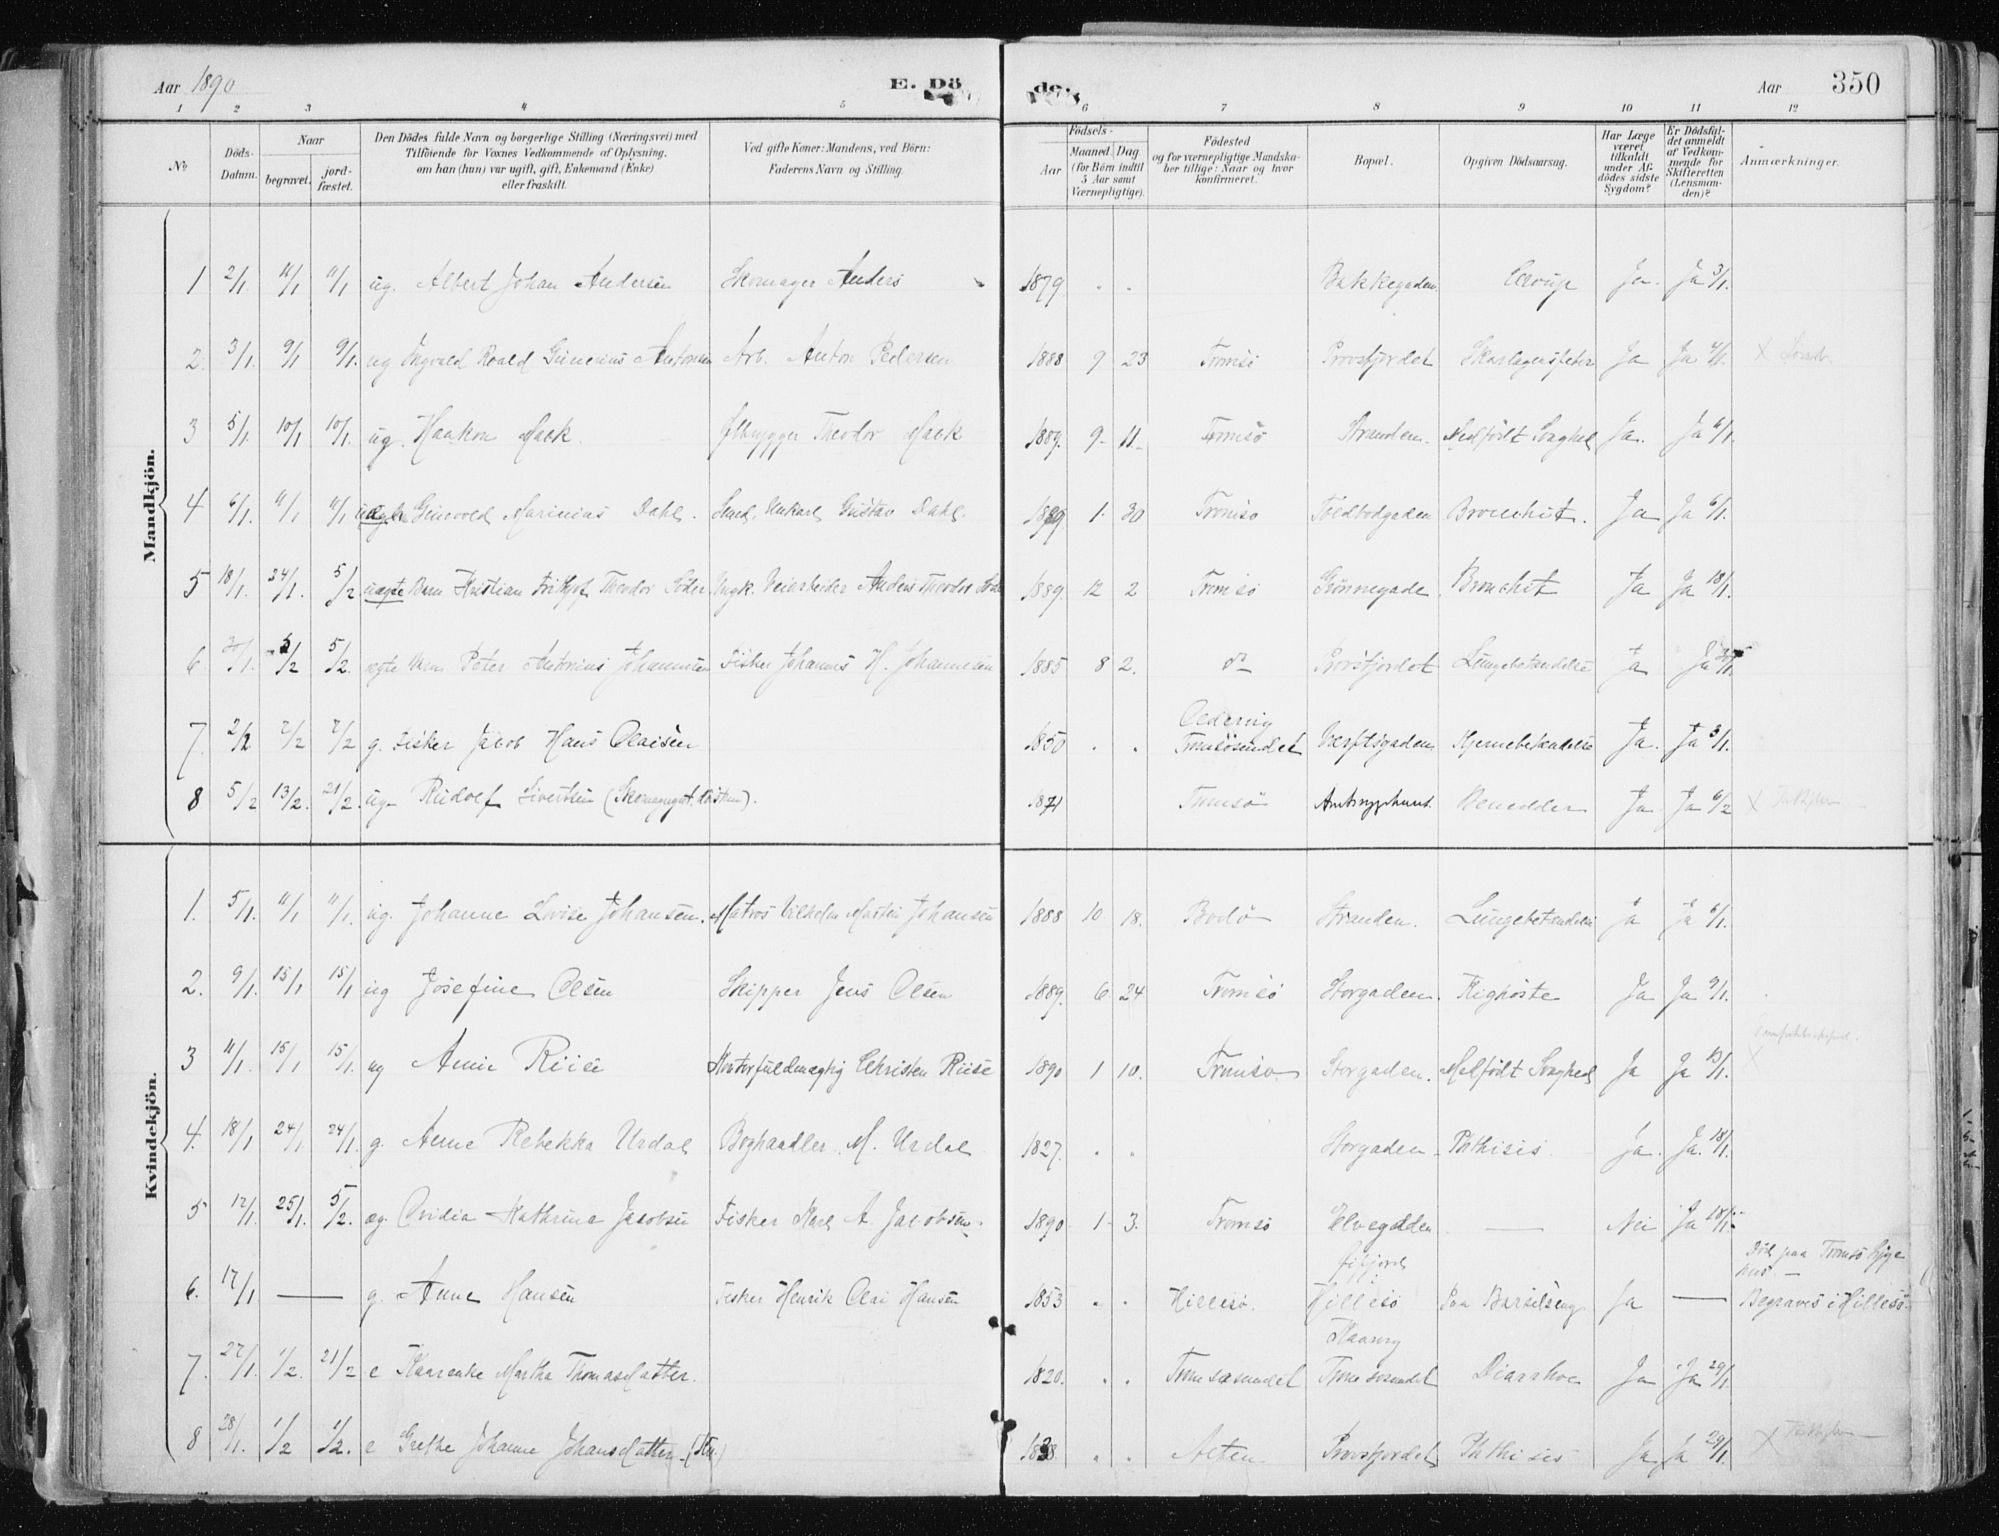 Aar 1890 E. Dö de. Aar 350
1 2 3 4 5 6 7 8 9 10 11 12
No
Döds-Datum.
Naar
begravet.
jord-fæstet.
Den Dödes fulde Navn og borgerlige Stilling (Næringsvei) med
Tilföiende for Voxnes Vedkommende af Oplysning,
om han (hun) var ugift, gift, Enkemand (Enke)
eller fraskilt.
Ved gifte Koner: Mandens, ved Börn:
Faderens Navn og Stilling.
Födsels-
Aar
Maaned. Dag
(for Börn indtil 5 Aar samt Værnepligtige).
Födested
og for værnepligtige Mandska-
ber tillige: Naar og hvor
konfirmeret.
Bopæl.
Opgiven Dödsaarsag.
Har Læge været tilkaldt under Af-dödes sidste Sygdom?
Er Dödsfal-det anmeldt af Vedkom-mende for Skifteretten (Lensman-den)?
Anmærkninger.
Mandkjön.
1 2/1 11/1 11/1 ug. Albert Johan Andersen Skomager Anders 1879 Bakkegaden Croup Ja. Ja 3/1.
2. 3/1. 9/1 9/1. ug Ingvald Roald Antonsen Arb. Anton Pedersen 1888 9 23 Tromsö Provsfjordet Skarlagensfeber Ja Ja
3 5/1. 10/1 10/1. ug. Haakon Mack. Ølbrygger Theodor Mack 1889. 9- 11- Tromsö Stranden. Medfödt Svaghed Ja. Ja 6/1.
4 6/1. 11/1 11/1 Marinius Dahl. Gustav Dahl. 1889 1. 30 Tromsö Toldbodgaden Bronchit. Ja Ja 6/1.
5 18/1. 24/1. 5/2 uægte Barn Kristian Frithjof Theodor Söder Ungk. Veiarbeider Anders Theodor 1889. 12 2 Tromsö Grönnegade Bronchit Ja Ja 18/1.
6 5/2 5/2. ægte Barn Peter Antonius Johannesen Fisker Johannes H. Johannesen 1885 8 2. do Provsfjordet Lungebetændelse Ja Ja
7. 2/2 7/2 7/2 g. Fisker Jacob Hans Olaisen 1850 Tromsösundet Værftsgaden Hjernebetændelse Ja. Ja
8 5/2 13/2. 21/2. ug. Rudolf Sivertsen 1871 Tromsö Amtssygehuset. Ja Ja 6/2 x
Kvindekjön.
1. 5/1. 11/1 11/1. ug. Johanne Lovise Johansen. Matros Vilhelm Martin Johansen 1888 10 18. Bodö Stranden. Lungebetændelse Ja Ja 6/1.
2. 9/1. 15/1 15/1 ug Josefine Olsen Skipper Jens Olsen 1889. 6 24 Tromsö Storgaden. Kighoste Ja Ja 9/1.
3 11/1. 15/1 15/1. ug Anne Riise Kontorfuldmægtig Christen Riise 1890 1 10. Tromsö Storgaden. Medfödt Svaghed Ja Ja 13/1. x
4. 18/1 24/1 24/1. g. Anne Rebekka Urdal Boghandler M. Urdal 1827. Storgaden Phthisis Ja. Ja. 18/1.
5 25/1. 5/2. æg. Ovidia Kathrina Jacobsen Fisker Karl A. Jacobsen. 1890 1- 3. Tromsö Elvegaden — Nei Ja 18/1.
6. 17/1 — g. Anne Hansen Fisker Henrik Olai Hansen 1853 Hillesö. Hillesö Paa Barselseng Ja — Död paa Tromsö Syge
hus. —
Begraves i Hillesö.
7. 27/1. 1/2. 21/2 e Martha Thomasdatter. 1820. Tromsösundet Tromsösundet Diarrhoe Ja Ja 29/1.
8 28/1. 1/2 1/2. e Grethe Johanne Johansdatter 1838. Alten Provsfjordet Phthisis Ja Ja 29/1. x